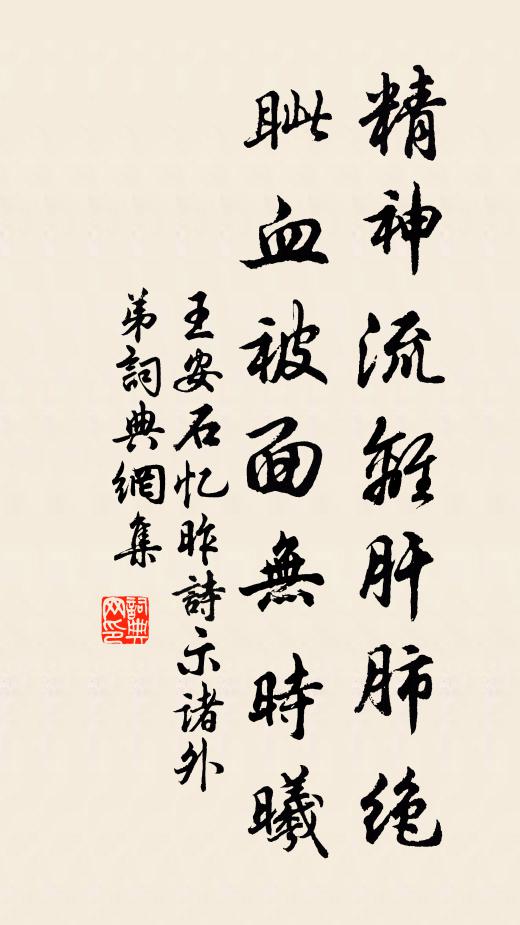 精神流離肝肺绝
眦血被面無時曦
王安石忆昨詩示诸外
弟詞典網集
詞典
网印